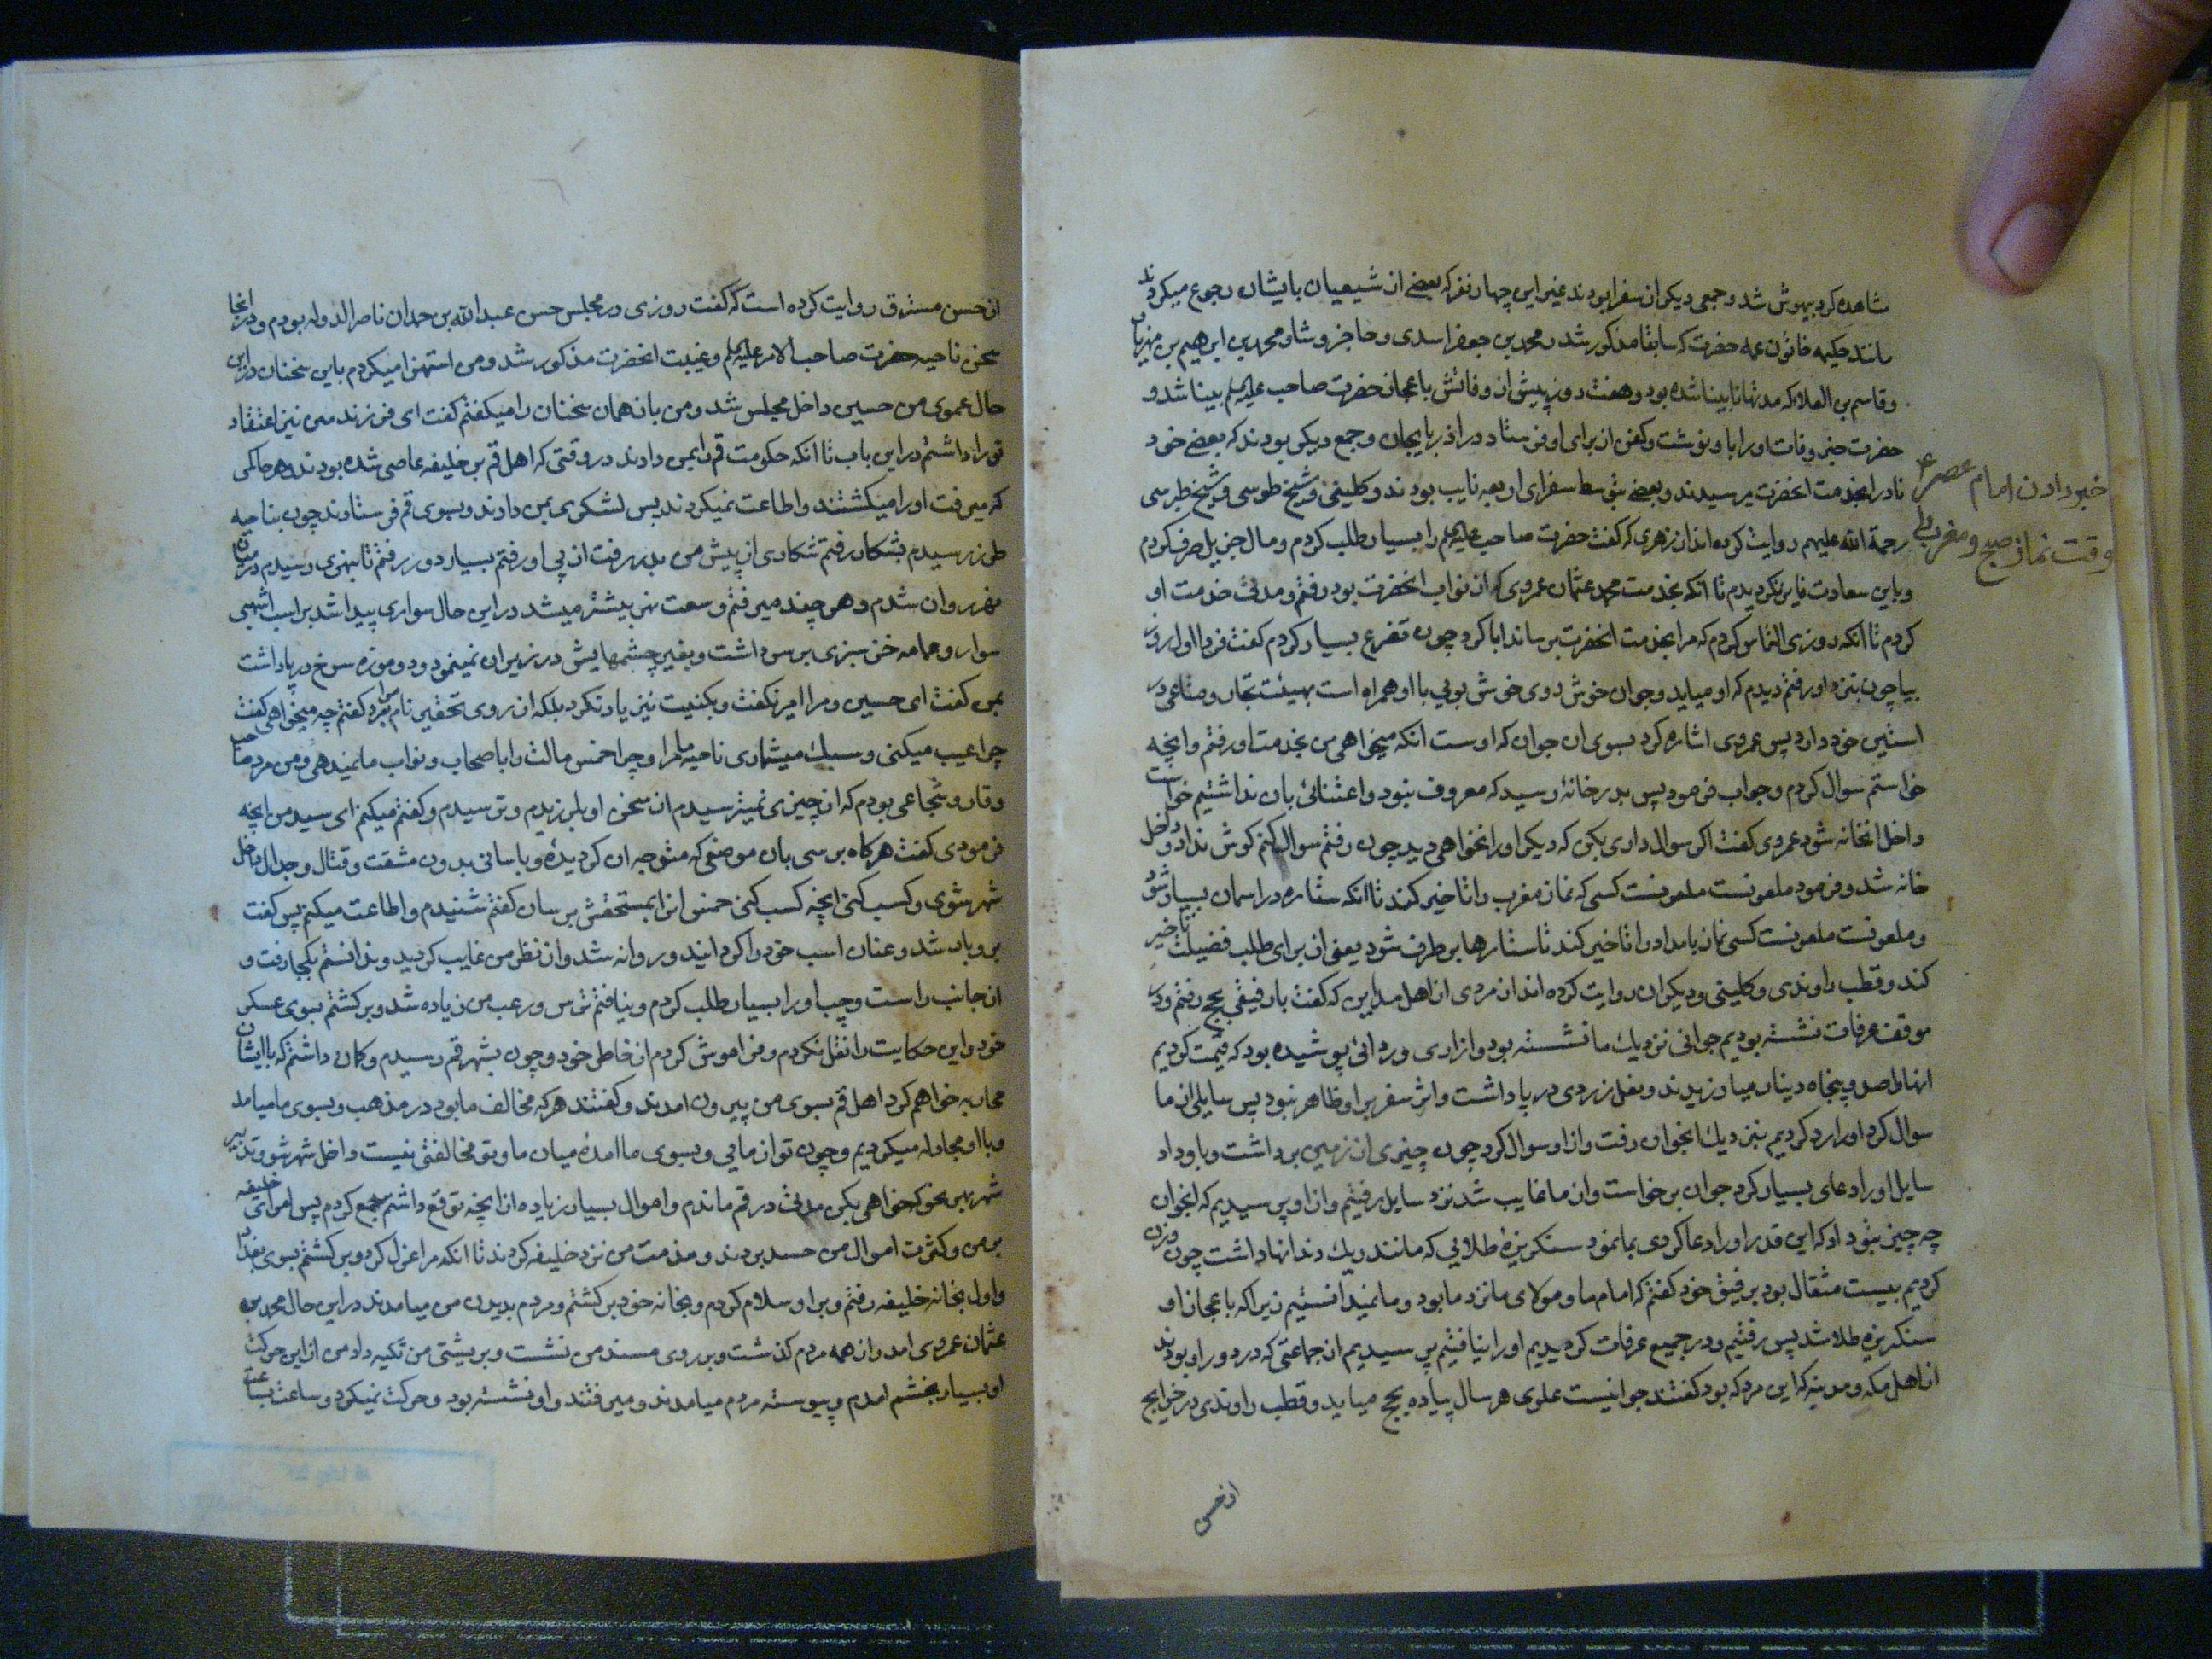 مشاهده کرد بیهوش شد و جمعی دیگر از سفرا بودند غیر این چهار نفر که بعضی از شیعیان بایشان رجوع میکردند
مانند حکیمه خاتون عمه حضرت که سابقا مذکور شد و محمد بن جعفر اسدی و حاجز و وشا و محمد بن ابراهیم بن مهزیار
و قاسم بن العلا که مدتها نابینا شده بود و هفت روز پیش از وفاتش باعجاز حضرت صاحب علیه السلم بینا شد و
حضرت خبر وفات او را باو نوشت و کفن از برای او فرستاد در اذربایجان و جمع دیگر بودند که بعضی خود
نادرا بخدمت انحضرت میرسیدند و بعضی بتوسط سفرای اربعه نایب بودند و کلینی و شیخ طوسی و شیخ طبرسی
رحمة الله علیهم روایت کرده‌اند از زهری که گفت حضرت صاحب علیه السلم را بسیار طلب کردم و مال جزیل صرف کردم
و باین سعادت فایز نگردیدم تا انکه بخدمت محمد عثمان عمروی که از نواب انحضرت بود رفتم و مدتی خدمت او
کردم تا انکه روزی التماس کردم که مرا بخدمت انحضرت برساند ابا کرد چون تضرع بسیار کردم گفت فردا اول روز
بیا چون بنزد او رفتم دیدم که او میاید و جوان خوش روی خوش بویی با او همراه است بهیئت تجار و متاعی در
استین خود دارد پس عمروی اشاره کرد بسوی ان جوان که اوست انکه میخواهی من بخدمت او رفتم و انچه
خواستم سوال کردم و جواب فرمود پس بدر خانهٔ رسید که معروف نبود و اعتنائی بان نداشتیم خواست
داخل انخانه شود عمروی گفت اگر سوال داری بکن که دیگر او را نخواهی دید چون رفتم سوال کنم گوش نداد و داخل
خانه شد و فرمود ملعونست ملعونست کسی که نماز مغرب را تاخیر کند تا انکه ستاره در اسمان بسیار شود
و ملعونست ملعونست کسی نماز بامداد را تاخیر کند تا ستارها برطرف شود یعنی از برای طلب فضیلت تاخیر
کند و قطب راوندی و کلینی و دیگران روایت کرده‌اند از مردی از اهل مداین که گفت با رفیقی بحج رفتم و در
موقف عرفات نشسته بودیم جوانی نزدیک ما نشسته بود و ازاری و ردائی پوشیده بود که قیمت کردیم
انها را صد و پنجاه دینار میارزیدند و نعل زردی در پا داشت و اثر سفر بر او ظاهر نبود پس سایلی از ما
سوال کرد او را رد کردیم بنزدیک انجوان رفت و از او سوال کرد جوان چیزی از زمین برداشت و باو داد
سایل او را دعای بسیار کرد جوان برخواست و از ما غایب شد نزد سایل رفتیم و از او پرسیدیم که انجوان
چه چیز بتو داد که این قدر او را دعا کردی بما نمود سنگریزهٔ طلائی که مانند ریک دندانها داشت چون وزن
کردیم بیست مثقال بود برفیق خود گفتم که امام ما و مولای ما نزد ما بود و ما نمیدانستیم زیرا که باعجاز او
سنکریزه طلا شد پس رفتیم و در جمیع عرفات گردیدیم او را نیافتیم پرسیدیم از جماعتی که در دور او بودند
از اهل مکه و مدینه که این مرد که بود گفتند جوانیست علوی هر سال پیاده بحج میاید و قطب راوندی در خرایج
از حسن
خبر دادن امام عصر ع
وقت نماز صبح و مغرب را
از حسن مسترق روایت کرده است که گفت روزی در مجلس حسن عبدالله بن حمدان ناصر الدوله بودم و در انجا
سخن ناحیه حضرت صاحب الامر علیه السلم و غیبت انحضرت مذکور شد و من استهزا میکردم باین سخنان در این
حال عموی من حسین داخل مجلس شد و من باز همان سخنان را میگفتم گفت ای فرزند من نیز اعتقاد
تو را داشتم در این باب تا انکه حکومت قم را بمن دادند در وقتی که اهل قم بر خلیفه عاصی شده بودند و هر حاکمی
که میرفت او را میکشتند و اطاعت نمیکردند پس لشکری بمن دادند و بسوی قم فرستادند چون بناحیه
طزر رسیدم بشکار رفتم شکاری از پیش من بدر رفت از پی او رفتم بسیار دور رفتم تا بنهری رسیدم در میان
نهر روان شدم و هر چند میرفتم وسعت نهر بیشتر میشد در این حال سواری پیدا شد بر اسب اشهبی
سوار و عمامه خز سبزی بر سر داشت و بغیر چشمهایش در زیر ان نمینمود و دو موزه سرخ در پا داشت
بمن گفت ای حسین و مرا امیر نگفت و بکنیت نیز یاد نکرد بلکه از روی تحقیر نام مرا برد گفتم چه میخواهی گفت
چرا عیب میکنی و سبک میشماری ناحیه ما را و چرا خمس مالت را باصحاب و نواب ما نمیدهی و من مرد صاحب
وقار و شجاعی بودم که از چیزی نمیترسیدم از سخن او بلرزیدم و ترسیدم و گفتم میکنم ای سید من انچه
فرمودی گفت هرگاه برسی بان موضعی که متوجه ان گردیدهٔ و باسانی بدون مشقت و قتال و جدال داخل
شهر شوی و کسب کنی انچه کسب کنی خمس انرا بمستحقش برسان گفتم شنیدم و اطاعت میکنم پس گفت
برو باب شد و عنان اسب خود را گردانید و روانه شد و از نظر من غایب گردید و ندانستم بکجا رفت و
از جانب راست و چپ او را بسیار طلب کردم و نیافتم ترس و رعب من زیاده شد و برگشتم بسوی عسکر
خود و این حکایت را نقل نکردم و فراموش کردم از خاطر خود و چون بشهر قم رسیدم و گمان داشتم که با ایشان
محاربه خواهم کرد اهل قم بسوی من بیرون امدند و گفتند هر که مخالف ما بود در مذهب و بسوی ما میامد
و با او مجادله میکردیم و چون تو از مایی و بسوی ما امدهٔ میان ما و تو مخالفتی نیست داخل شهر شو و تدبیر
شهر بهر نحو که خواهی بکن مدتی در قم ماندم و اموال بسیار زیاده از انچه توقع داشتم جمع کردم پس امرای خلیفه
بر من و کثرت اموال من حسد بردند و مذمت من نزد خلیفه کردند تا انکه مرا عزل کرد و برگشتم بسوی بغداد
و اول بخانه خلیفه رفتم و بر او سلام کردم و بخانه خود برگشتم و مردم بدیدن من میامدند در این حال محمد بن
عثمان عمروی امد و از همه مردم گذشت و بر روی مسند من نشست و بر پشتی من تکیه داد من از این حرکت
او بسیار بخشم امدم و پیوسته مردم میامدند و میرفتند و او نشسته بود و حرکت نمیکرد و ساعت بساعت